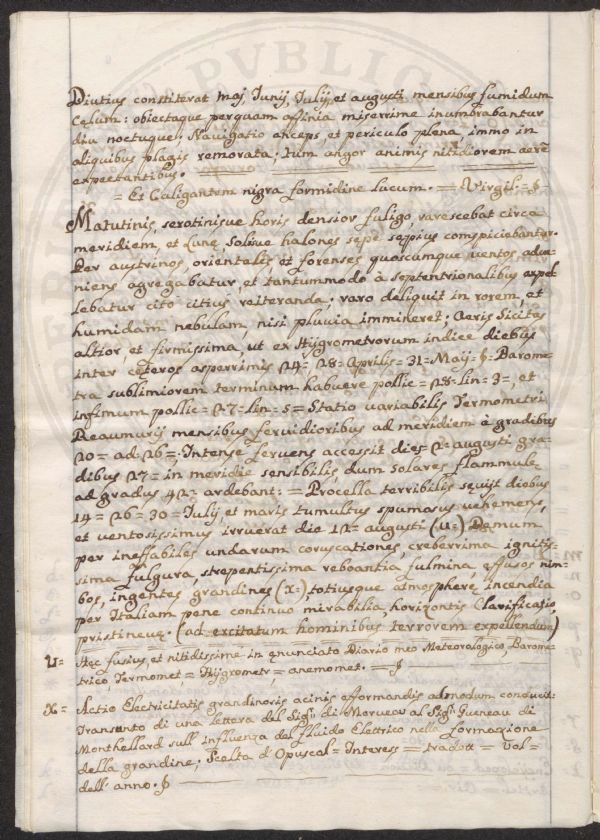 Diutius constiterat Maj, Junij, Julij, et augusti mensibus fumidum
Cælum: obiectaque perquam affinia miserrime inumbrabantur
diu noctuque; Navigatio anceps, et periculo plena, immo in
aliquibus plagis remorata; tum angor animis nitidiorem aerē
expectantibus.
= Et Caligantem nigra formidine lucum. = Virgil =
Matutinis, serotinisve horis densior fuligo, rarescebat circa
meridiem, et Lunę Solisve halones sępe sępius conspiciebantur.
Per austrinos, orientales et forenses quoscumque ventos adve-
niens agregabatur, et tantummodo à septentrionalibus expel
lebatur cito citius reiteranda; raro deliquit in rorem, et
humidam nebulam, nisi pluvia immineret; Aeris Sicitas
altior et firmissima, ut ex Hijgrometrorum indice diebus
inter cęteros asperrimis 24 = 28 = Aprilis = 31 = Maij = Barome=
tra sublimiorem terminum habuere pollic = 28 = lin = 3 =, et
infimum pollic = 27 = lin = 5 = Statio variabilis Termometri
Reaumurij mensibus fervidioribus ad meridiem à gradibus
20 = ad 26 = . Intense fervens accessit dies = 2 = augusti gra=
dibus 27 = in meridie sensibilis, dum solares flammulę
ad gradus 42 = ardebant: = Procella terribilis sęvijt diebus
14 = 26 = 30 = Julij, et maris tumultus spumosus vehemens,
et ventosissimus irruerat die 12 = augusti (u=) Demum
per ineffabiles undarum coruscationes, creberrima ignitis=
sima fulgura, strepentissima reboantia fulmina, effusos nim=
bos, ingentes grandines (x=) totiusque atmospherę incendia
per Italiam pene continuo mirabilia, horizontis Clarificatio
pristineuę. (ad excitatum hominibus terrorem expellendum)
u= Hęc fusius, et nitidissime in enunciato Diario meo Meteorologico, Barome=
trico, Termomet = Hijgrometr =, anemomet. =
x= Actio Electricitatis grandinoris acinis efformandis admodum conducit.
Transunto di una lettera del Sigr. di Morveau al Sigr. Gueneau di
Monthellard sull' influenza del fluido Elettrico nella formazione
della grandine; Scelta d'Opuscol = Interess = tradott = Vol =
dell' anno.